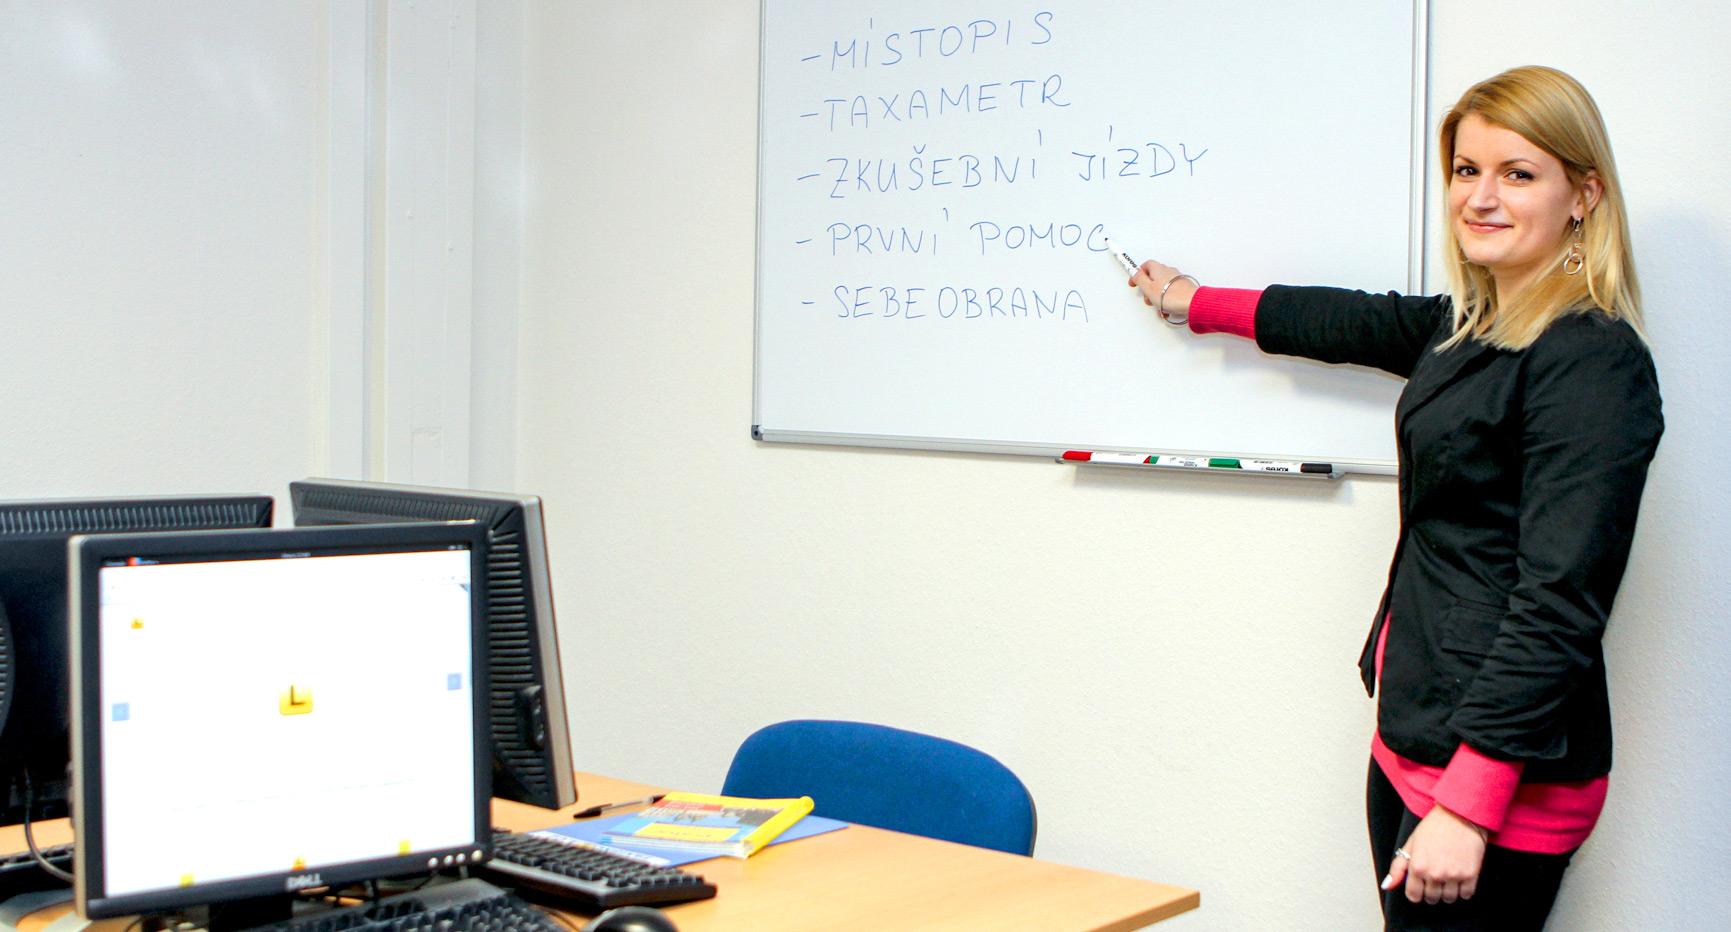 - MÍSTOPIS
- TAXAMETR
- ZKUŠEBNÍ JÍZDY
- PRVNÍ POMOC
- SEBEOBRANA
Kores
L
DELL